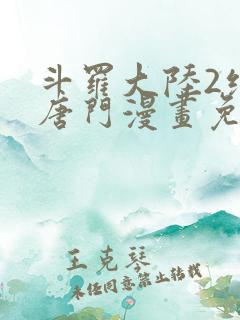 斗羅大陸2
唐門漫畫免
王克琴
未经同意禁止转载